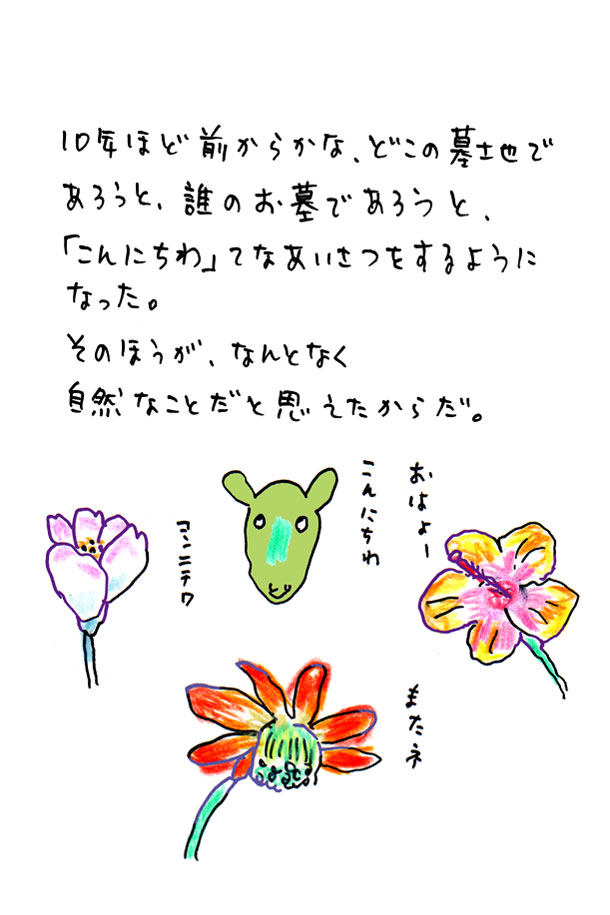 10年ほど前からかな、どこの墓地で
あろうと、誰のお墓であろうと、
「こんにちわ」てなあいさつをするように
なった。
そのほうが、なんとなく
自然なことだと思えたからだ。
おはよー
こんにちわ
コンニチワ
またネ